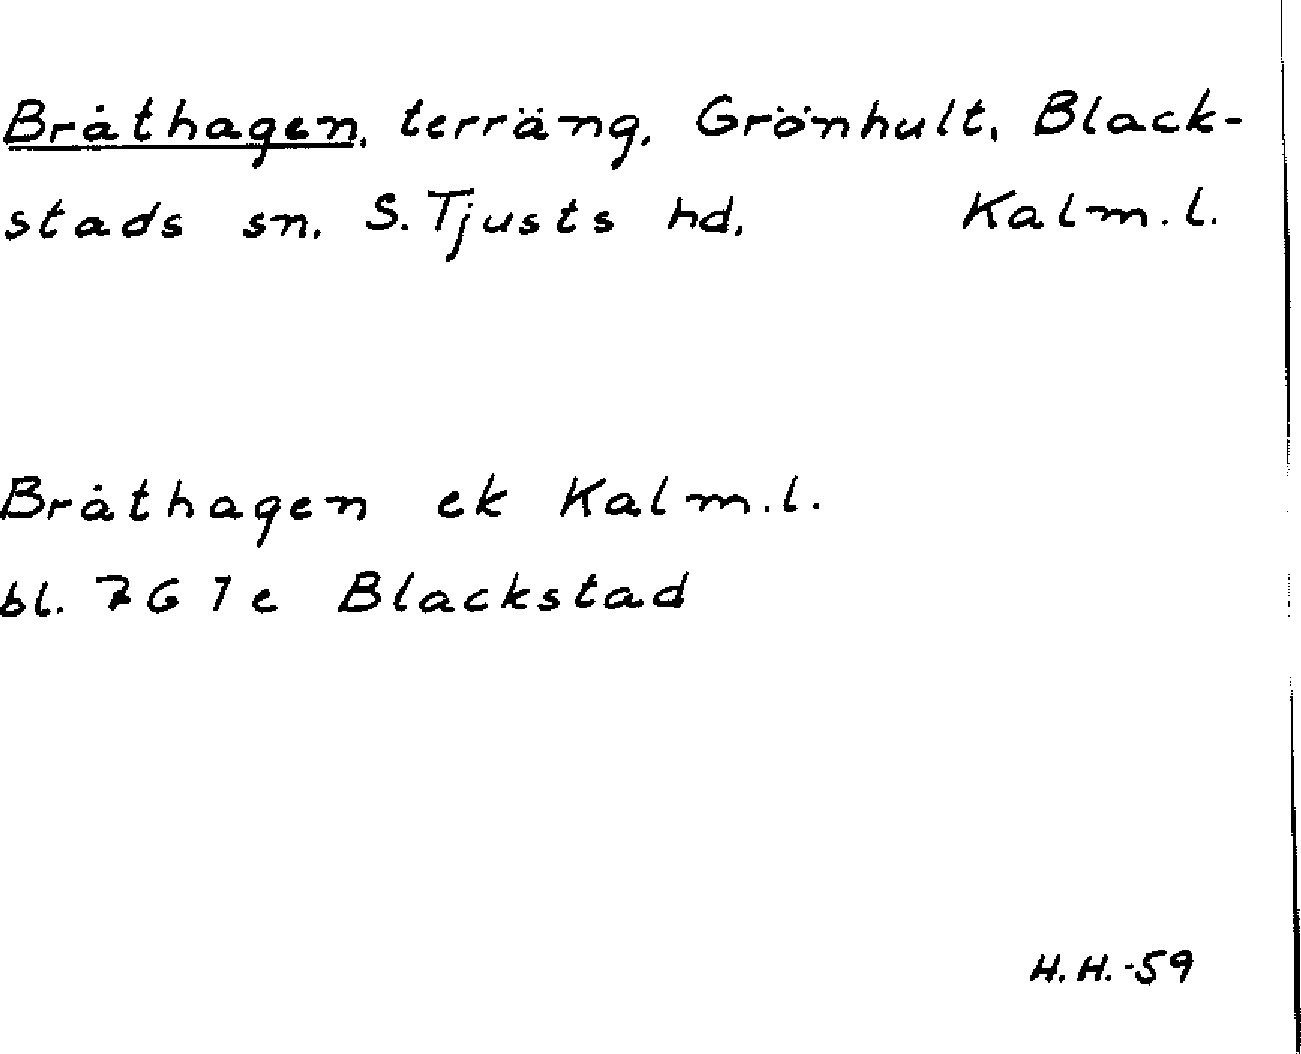 Bråthagen, terräng, Grönhult, Black-
stads sn. S. Tjusts hd. Kalm. l.
Bråthagen ek Kalm. l.
bl. 7G 7e Blackstad
H. H. -59